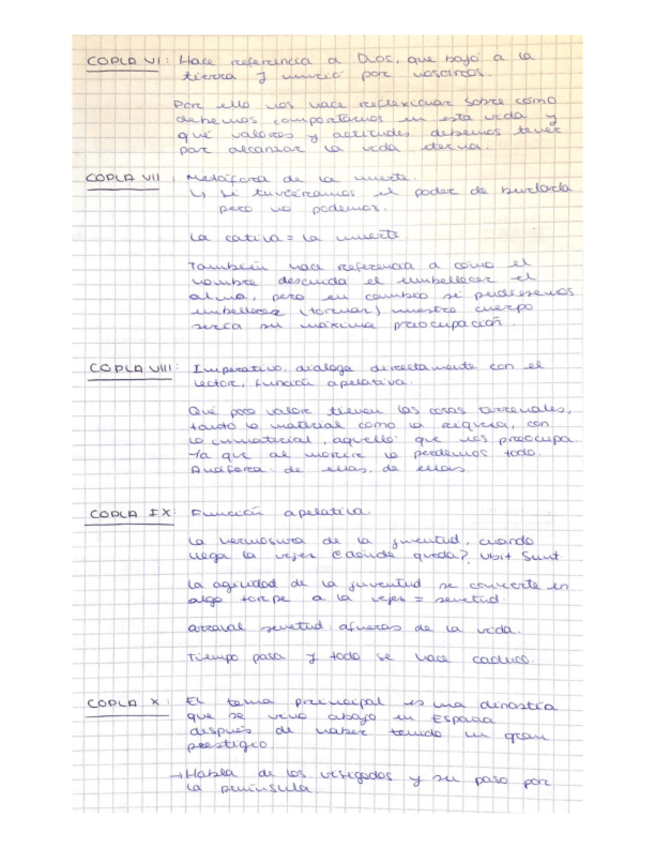 COPLA VI: Hace referencia a Dios, que bajó a la
tierra y murió por nosotros.
Por ello nos hace reflexionar sobre cómo
debemos comportarnos en esta vida y
qué valores y actitudes debemos tener
par alcanzar la vida eterna.
COPLA VII: Metáfora de la muerte.
↳ si tuviéramos el poder de burlarla
pero no podemos.
La cativa = la muerte
También hace referencia a cómo el
hombre descuida el embellecer el
alma, pero en cambio si pudiesemos
embellecer (tornar) nuestro cuerpo
sería su máxima preocupación.
COPLA VIII: Imperativo, dialoga directamente con el
lector, función apelativa.
Qué poco valor tienen las cosas terrenales,
tanto lo material como la riqueza, con
lo inmaterial, aquello que nos preocupa
Ya que al morir lo perdemos todo.
Anáfora: de ellas, de ellas.
COPLA IX: Función apelativa.
La hermosura de la juventud, cuando
llega la vejez ¿dónde queda? Ubit Sunt
La agilidad de la juventud se convierte en
algo torpe a la vejez = senetud.
arraval senetud: afueras de la vida.
Tiempo pasa y todo se hace caduco.
COPLA X: El tema principal es una dinastía
que se vino abajo en España
después de haber tenido un gran
prestigio
→ Habla de los visigodos y su paso por
la península.